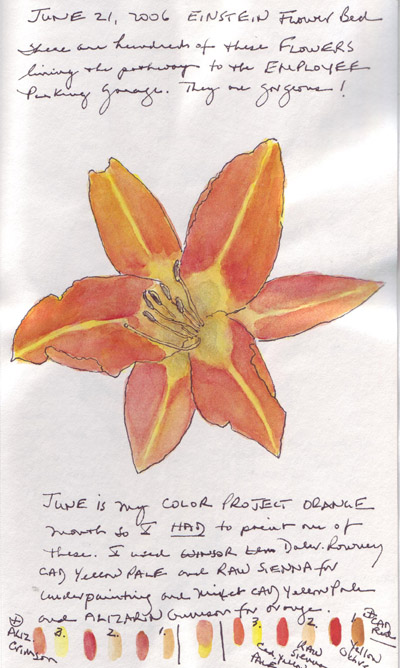 JUNE 21, 2006 EINSTEIN Flower Bed
these are hundreds of these FLOWERS
lining the pathway to the EMPLOYEE
Parking Garage. They are gorgeous!
JUNE is my COLOR PROJECT ORANGE
month so I HAD to paint one of
these. I used WINSOR Daler-Rowney
CAD Yellow PALE and RAW SIENNA for
underpainting and CAD Yellow Pale
and ALIZARIN Crimson for orange.
ALIZ
Crimson
3. 2. 1.
3. 2. 1.
CAD
Red
Cad. Y.
Pale
RAW
Sienna
Yellow